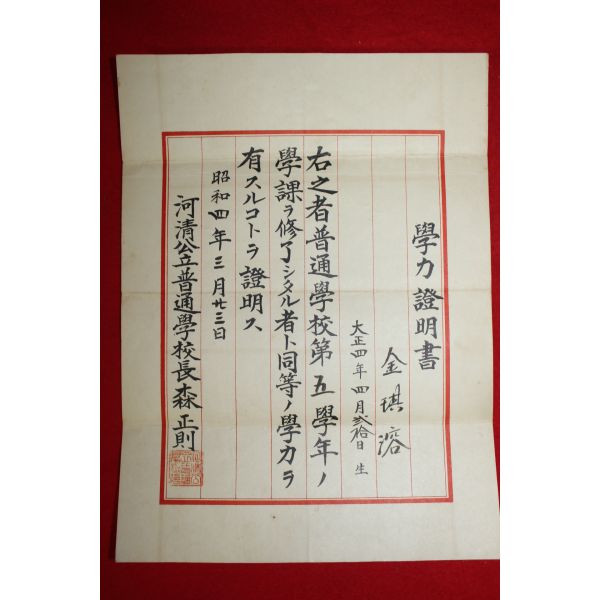 學力證明書
金琪溶
大正四年四月貳拾日生
右之者普通學校第五學年ノ
學課ヲ修了シタル者ト同等ノ學力ヲ
有スルコトヲ證明ス
昭和四年三月廿三日
河清公立普通學校長森正則